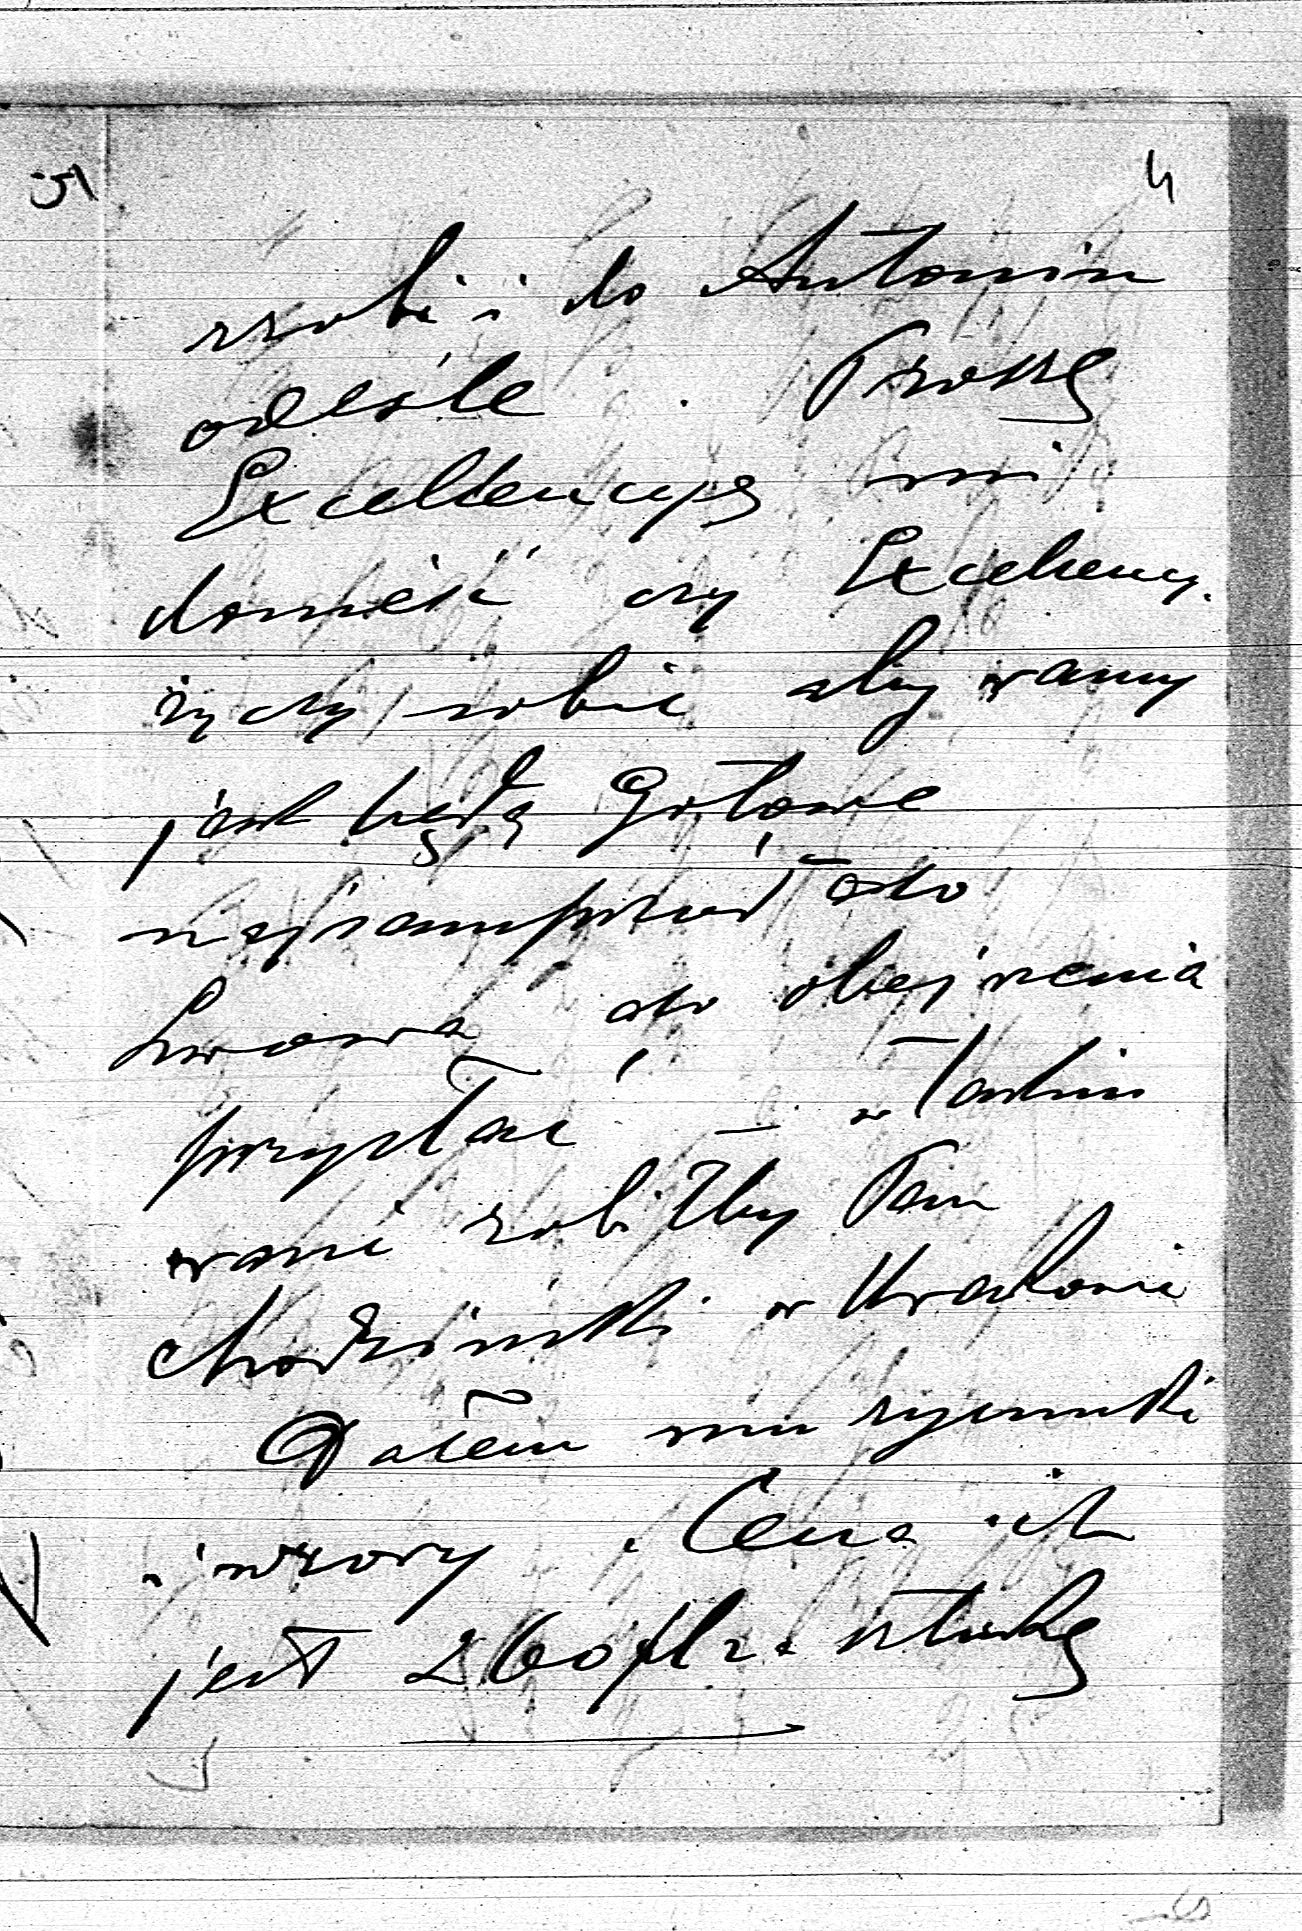 5
4
zrobi i do Antonin
odeśle. Proszę
Excellencyę mi
donieść czy Excellency.
życzy sobie aby ramy
jak będą Gotowe
najsamprzód do
Lwowa do obejrzenia
przysłać — 
ramy zrobiłby Pan
Chodziński w Krakowie
Dałem mu rysunki
i wzory. Cena ich
jest 260 fl za sztukę